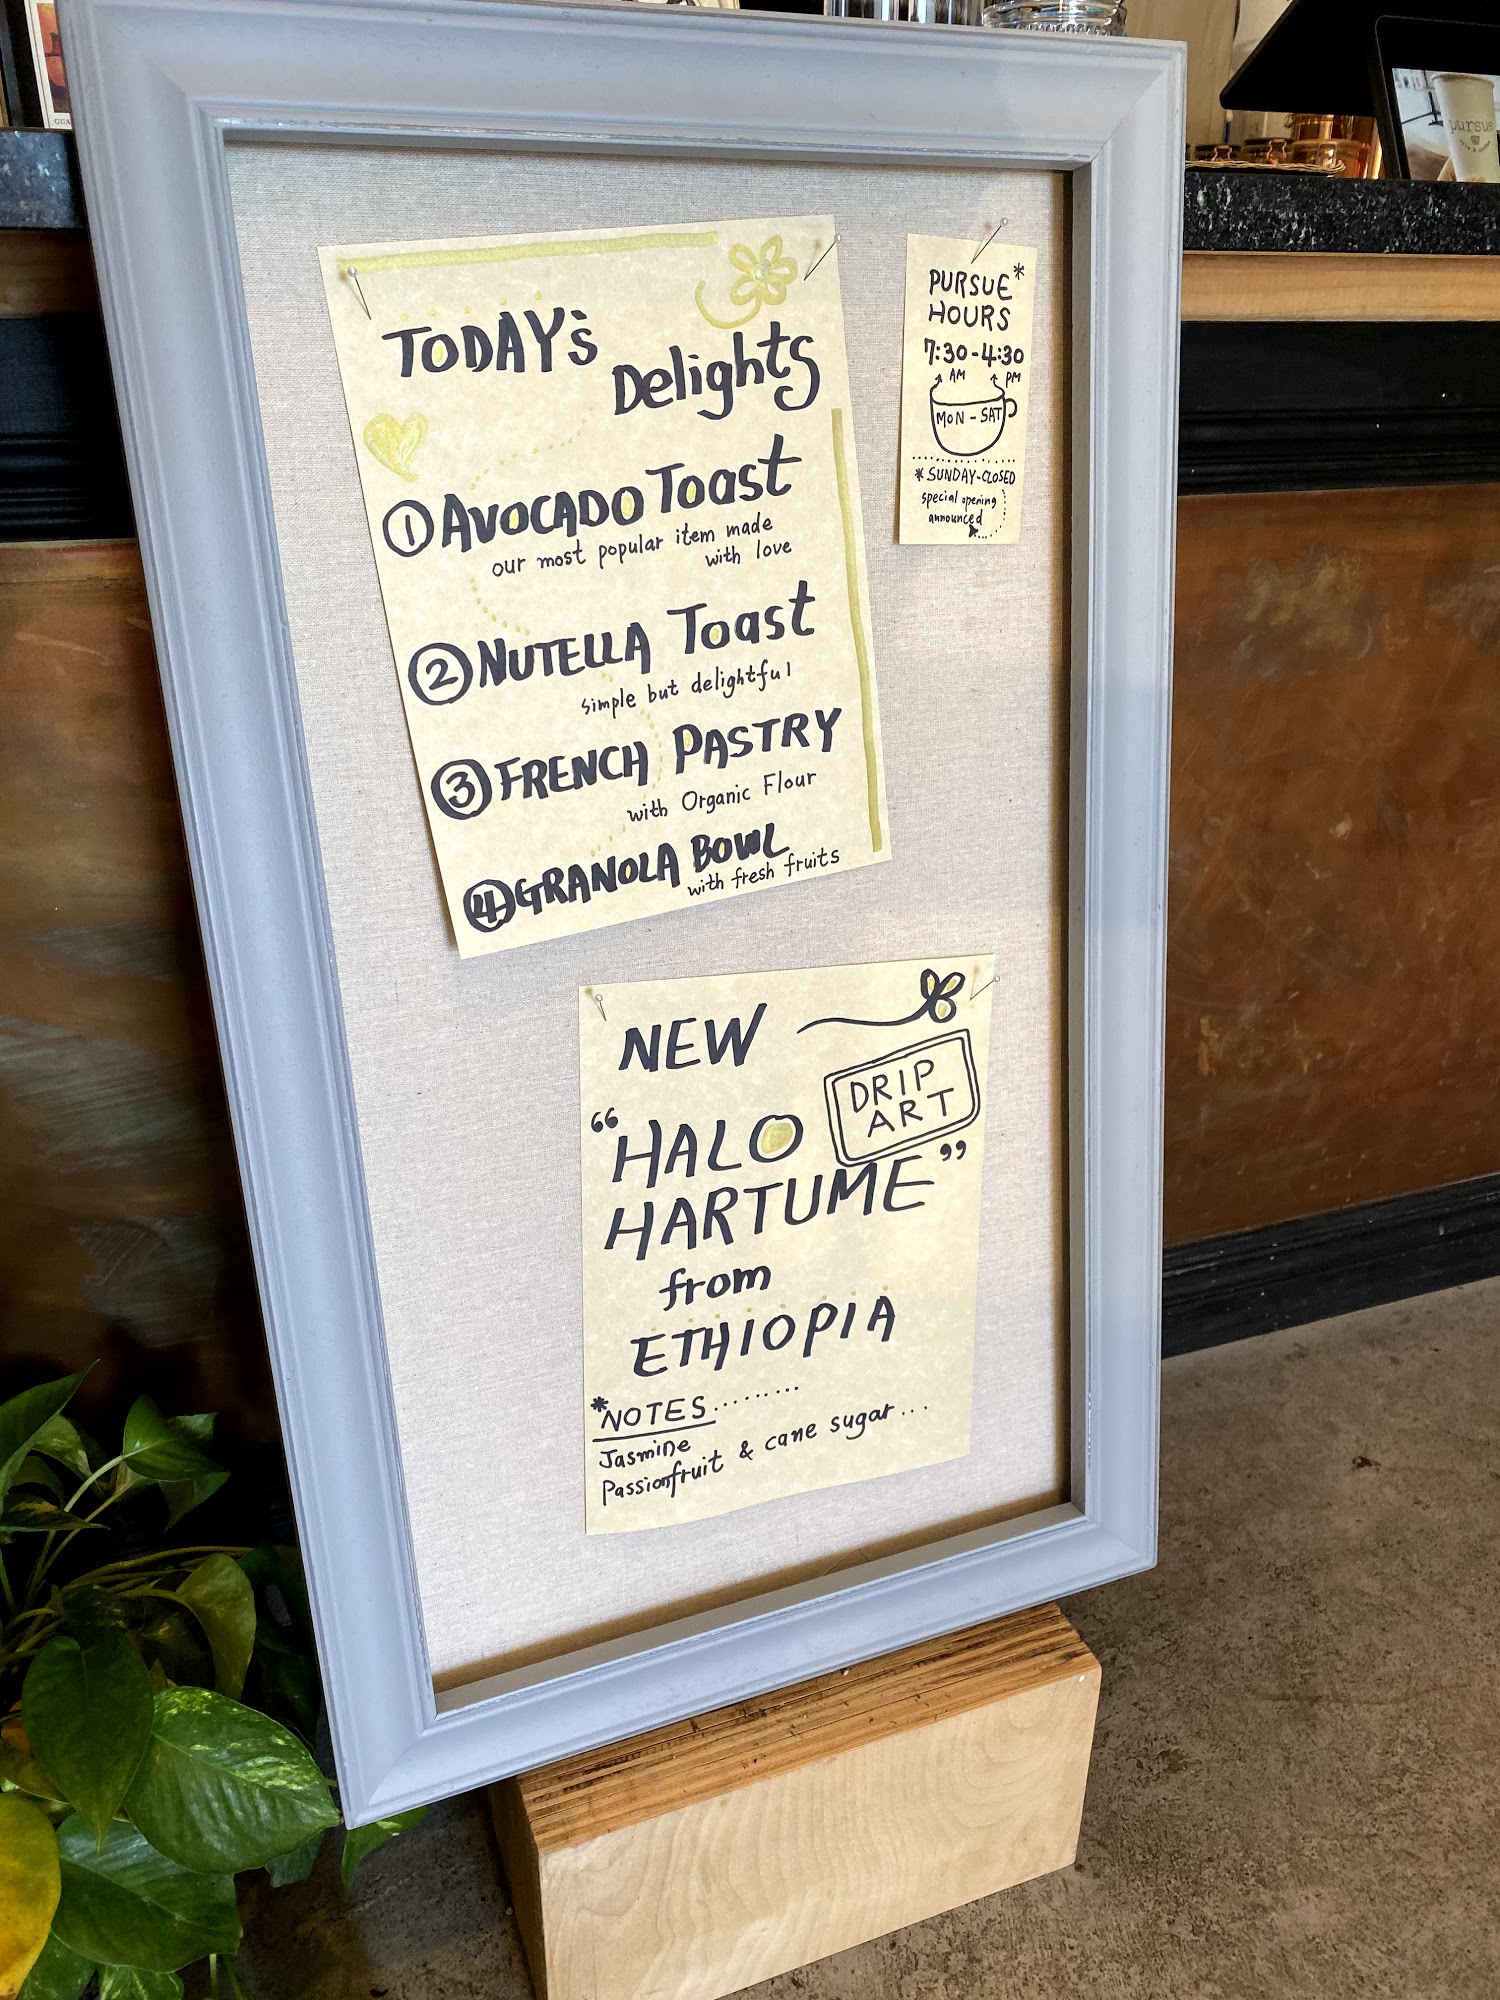 TODAY's
Delights
① AVOCADO Toast
our most popular item made
with love
② NUTELLA Toast
simple but delightful
③ FRENCH PASTRY
with Organic Flour
④ GRANOLA BOWL
with fresh fruits
PURSUE*
HOURS
7:30-4:30
AM PM
MON - SAT
*SUNDAY-CLOSED
special opening
announced
NEW
DRIP
ART
"HALO
HARTUME"
from
ETHIOPIA
*NOTES.........
Jasmine
Passionfruit & cane sugar...
pursue